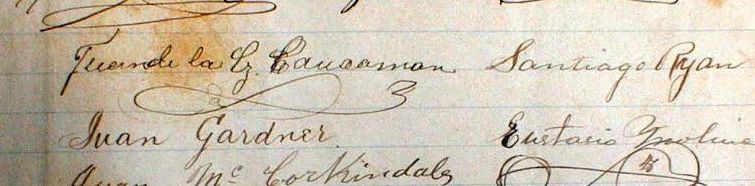 Juan de la Cz. Caucaman Santiago Ryan
Juan Gardner. Eustasio Molina
Juan Mc Corkindale